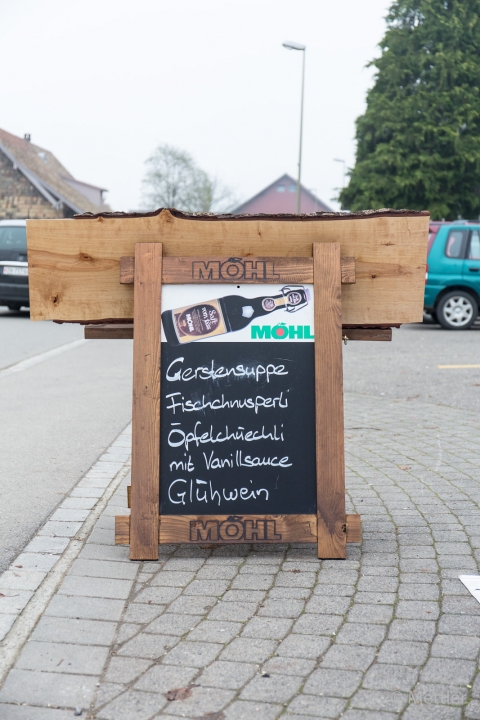 MÖHL
Saft
vom Fass
MÖHL
MÖHL
Gerstensuppe
Fischchnusperli
Öpfelchüechli
mit Vanillsauce
Glühwein
MÖHL